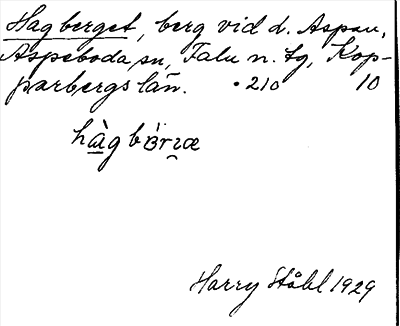 Hagberget, berg vid d. Aspan,
Aspeboda sn, Falu n. tg, Kop-
parbergs län. • 210 10
hàg bɜ̀rɿæ
Harry Ståhl 1929